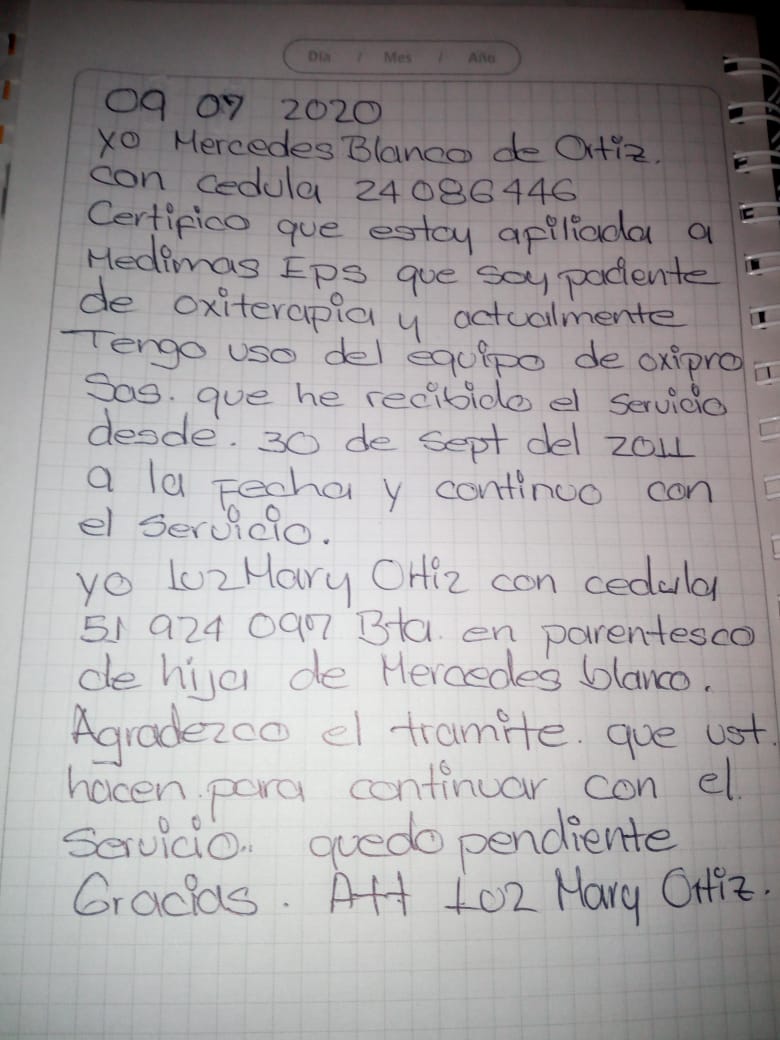 Dia / Mes / Año
09 07 2020
yo Mercedes Blanco de Ortiz.
con cedula 24 086 446
Certifico que estoy afiliada a
Medimas Eps que soy paciente
de oxiterapia y actualmente
Tengo uso del equipo de oxipro
Sas. que he recibido el servicio
desde. 30 de Sept del 2011
a la Fecha y continuo con
el servicio.
yo Luz Mary Ortiz con cedula
51 924 097 Bta. en parentesco
de hija de Mercedes blanco.
Agradezco el tramite. que ust.
hacen. para continuar con el.
Servicio.. quedo pendiente
Gracias. Att Luz Mary Ortiz.